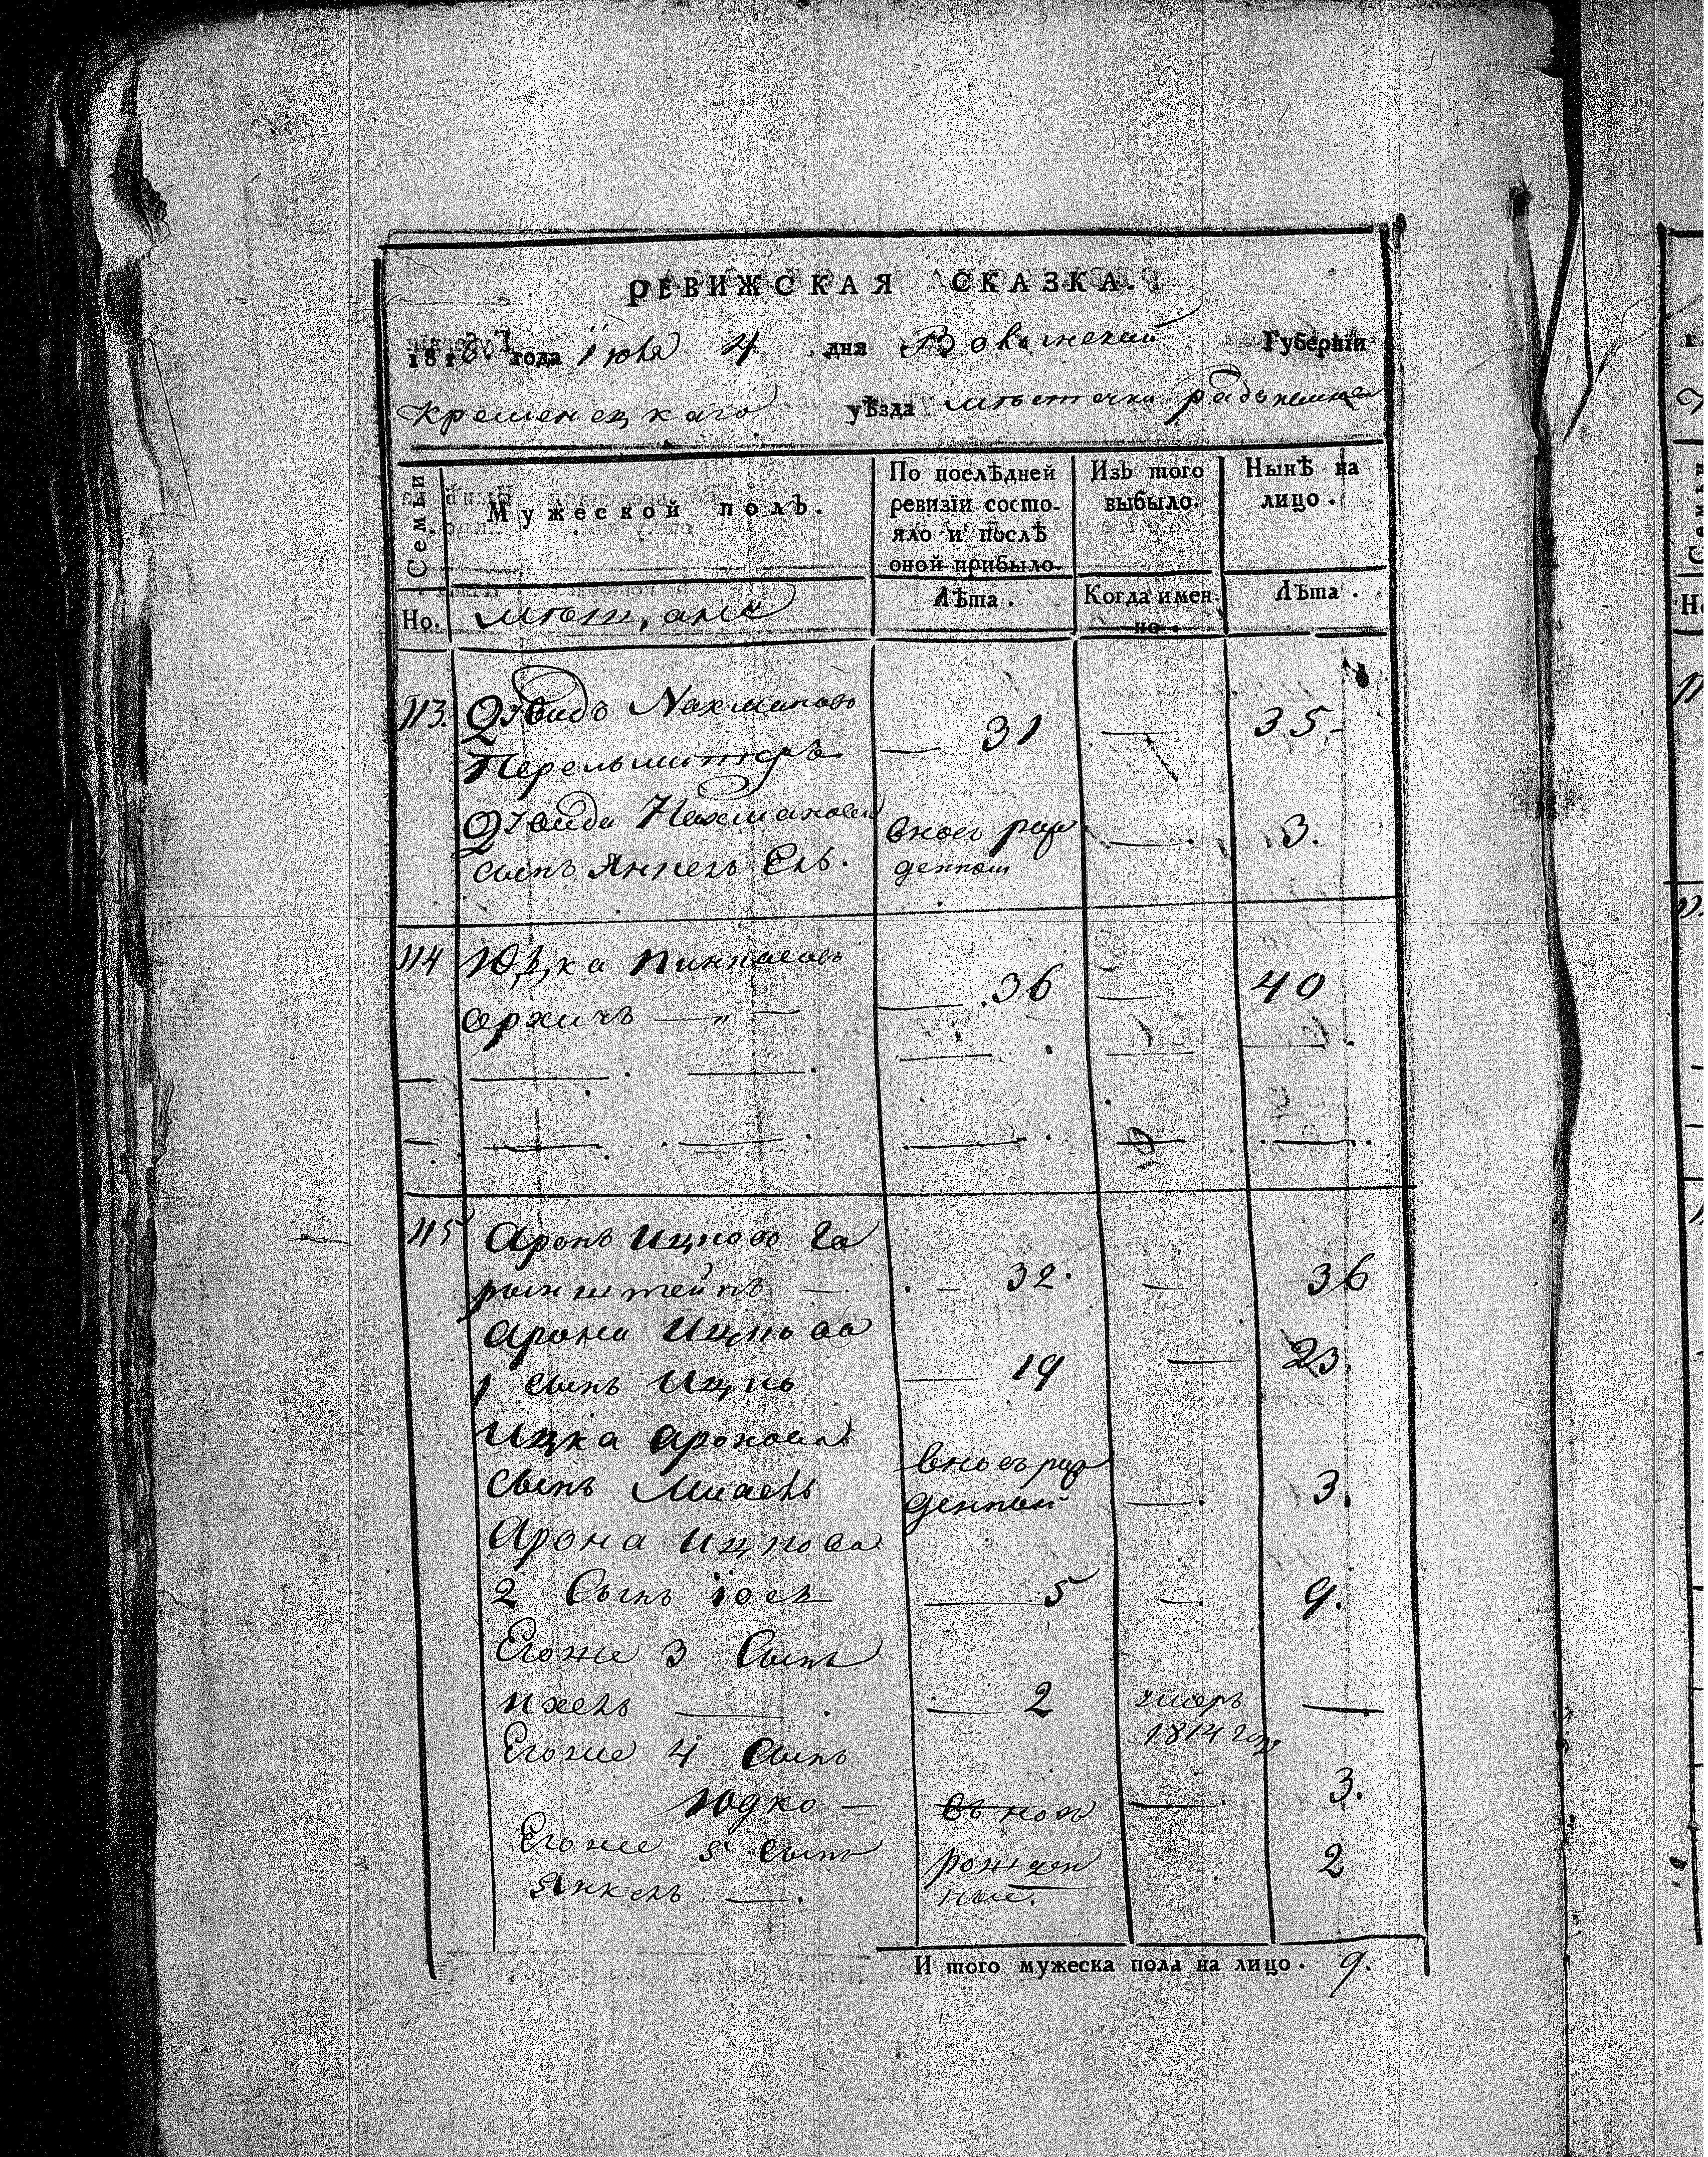 РЕВИЖСКАЯ СКАЗКА.
1816. года Iюля 4 дня Волынской Губернїи
Кременецкаго уѣзда мѣстечка
Семьи
Мужеской полъ.
По послѣдней ревизїи состо-
яло и послѣ
оной прибыло.
Изъ того
выбыло.
Нынѣ на
лицо.
Но. мѣщане Лѣта. Когда имен-
но. Лѣта.
113. Давидъ Нахмановъ
Перельмитеръ — 31 — 35
Давида Нахманова вновь рож — 3.
сынъ Янкель денной
114 Юзка Пинкасовъ
— 36 — 40
115 Аронъ Ицковъ Га
ринштейнъ — 32. — 36
Арона Ицкова
1 сынъ Ицко — 19 — 23.
Ицка Аронова
сынъ вновь рож
денной — 3.
Арона Ицкова
2 Сынъ Iось — 5 — 9.
Егоже 3 Сынъ
Ихель — 2 умеръ —
1814 года
Егоже 4 Сынъ
Юдко — вновь — 3.
Егоже 5 Сынъ
Янкель — рожден
ные. 2
И того мужеска пола на лицо. 9.